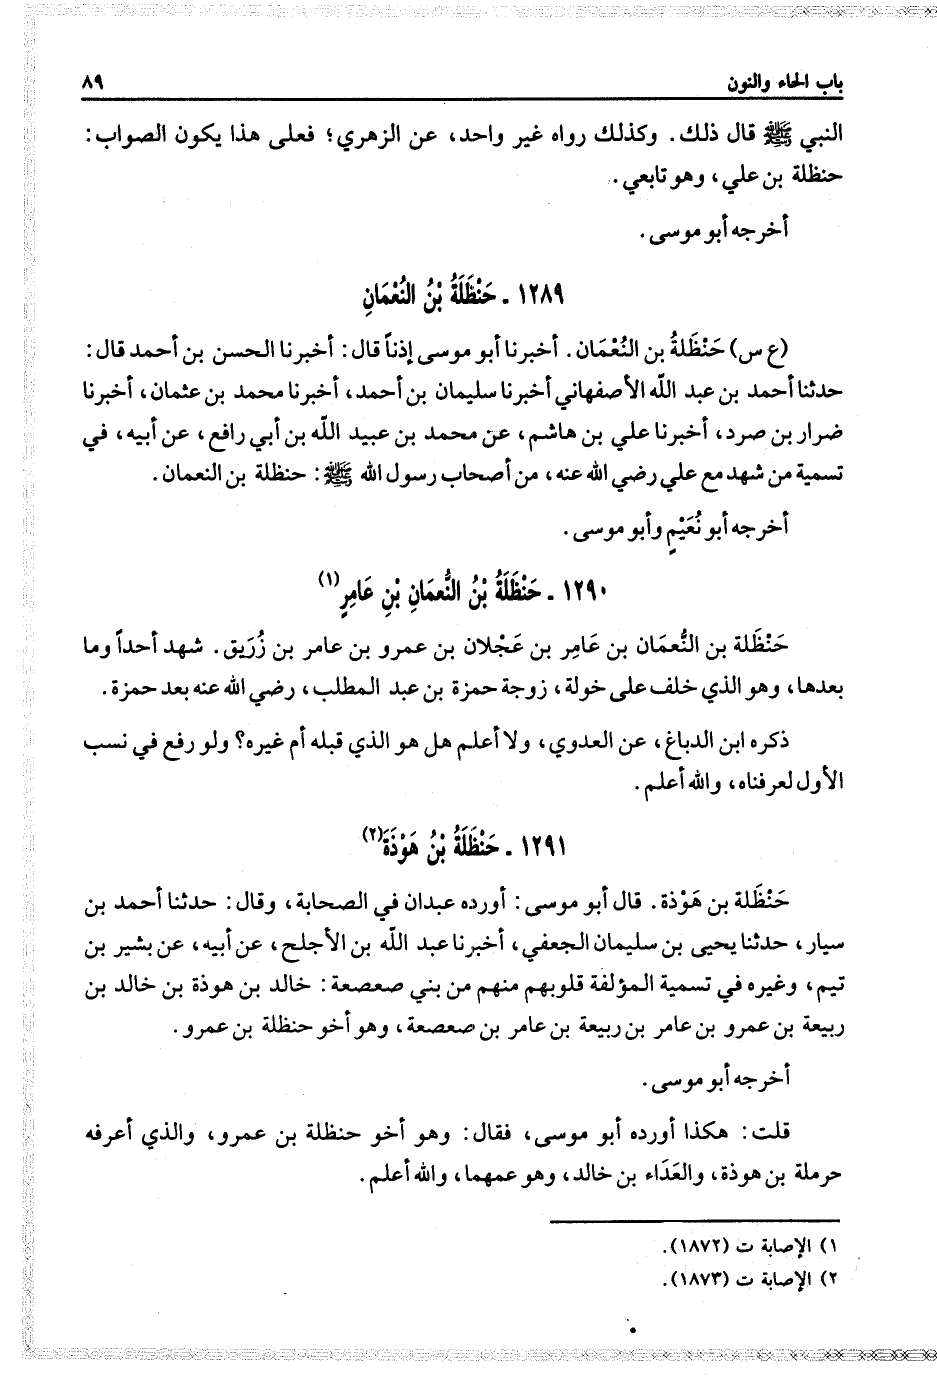 باب الحاء والنون
٨٩
النبي ﷺ قال ذلك. وكذلك رواه غير واحد، عن الزهري؛ فعلى هذا يكون الصواب:
حنظلة بن علي، وهو تابعي.
أخرجه أبو موسى.
١٢٨٩ ـ حَنْظَلَةُ بْنُ النُعْمَانِ
(ع س) حَنْظَلةُ بن النُعْمَان. أخبرنا أبو موسى إذناً قال: أخبرنا الحسن بن أحمد قال:
حدثنا أحمد بن عبد اللّه الأصفهاني أخبرنا سليمان بن أحمد، أخبرنا محمد بن عثمان، أخبرنا
ضرار بن صرد، أخبرنا علي بن هاشم، عن محمد بن عبيد اللّه بن أبي رافع، عن أبيه، في
تسمية من شهد مع علي رضي الله عنه، من أصحاب رسول الله ﷺ: حنظلة بن النعمان.
أخرجه أبو نُعَيْمٍ وأبو موسى.
١٢٩٠ ـ حَنْظَلَةُ بْنُ النُّعمَانِ بْنِ عَامِرٍ(١)
حَنْظَلة بن النُّعمَان بن عَامِر بن عَجْلان بن عمرو بن عامر بن زُرَيق. شهد أحداً وما
بعدها، وهو الذي خلف على خولة، زوجة حمزة بن عبد المطلب، رضي الله عنه بعد حمزة.
ذكره ابن الدباغ، عن العدوي، ولا أعلم هل هو الذي قبله أم غيره؟ ولو رفع في نسب
الأول لعرفناه، والله أعلم.
١٢٩١ ـ حَنْظَلَةُ بْنُ هَوْذَةَ(٢)
حَنْظَلة بن هَوْذة. قال أبو موسى: أورده عبدان في الصحابة، وقال: حدثنا أحمد بن
سيار، حدثنا يحيى بن سليمان الجعفي، أخبرنا عبد اللّه بن الأجلح، عن أبيه، عن بشير بن
تيم، وغيره في تسمية المؤلفة قلوبهم منهم من بني صعصعة: خالد بن هوذة بن خالد بن
ربيعة بن عمرو بن عامر بن ربيعة بن عامر بن صعصعة، وهو أخو حنظلة بن عمرو.
أخرجه أبو موسى.
قلت: هكذا أورده أبو موسى، فقال: وهو أخو حنظلة بن عمرو، والذي أعرفه
حرملة بن هوذة، والعَدَاء بن خالد، وهو عمهما، والله أعلم.
١) الإصابة ت (١٨٧٢).
٢) الإصابة ت (١٨٧٣).